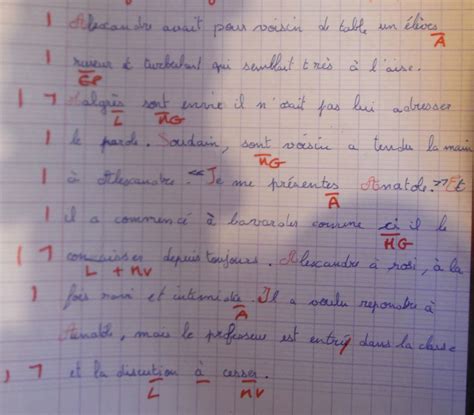 1 Alexandre avait pour voisin de table un élèves
A
1 rieveur é turbulant qui semblait très à l'aise.
EP
1 7 Malgrès sont envie il n'osait pas lui adresser
L HG
1 le parole. Soudain, sont voisin a tendu la main
HG
1 à Alexandre. "Je me présentes Anatole." Et
A
1 il a commencé à bavarder comme ci il le
HG
1 7 connaisser depuis toujours. Alexandre à rosi, à la
L + MV
1 fois ravi et intimidée. Il a voulu repondre à
A
Anatole, mais le professeur est entréy dans la classe
7 et la discution à cesser.
L MV